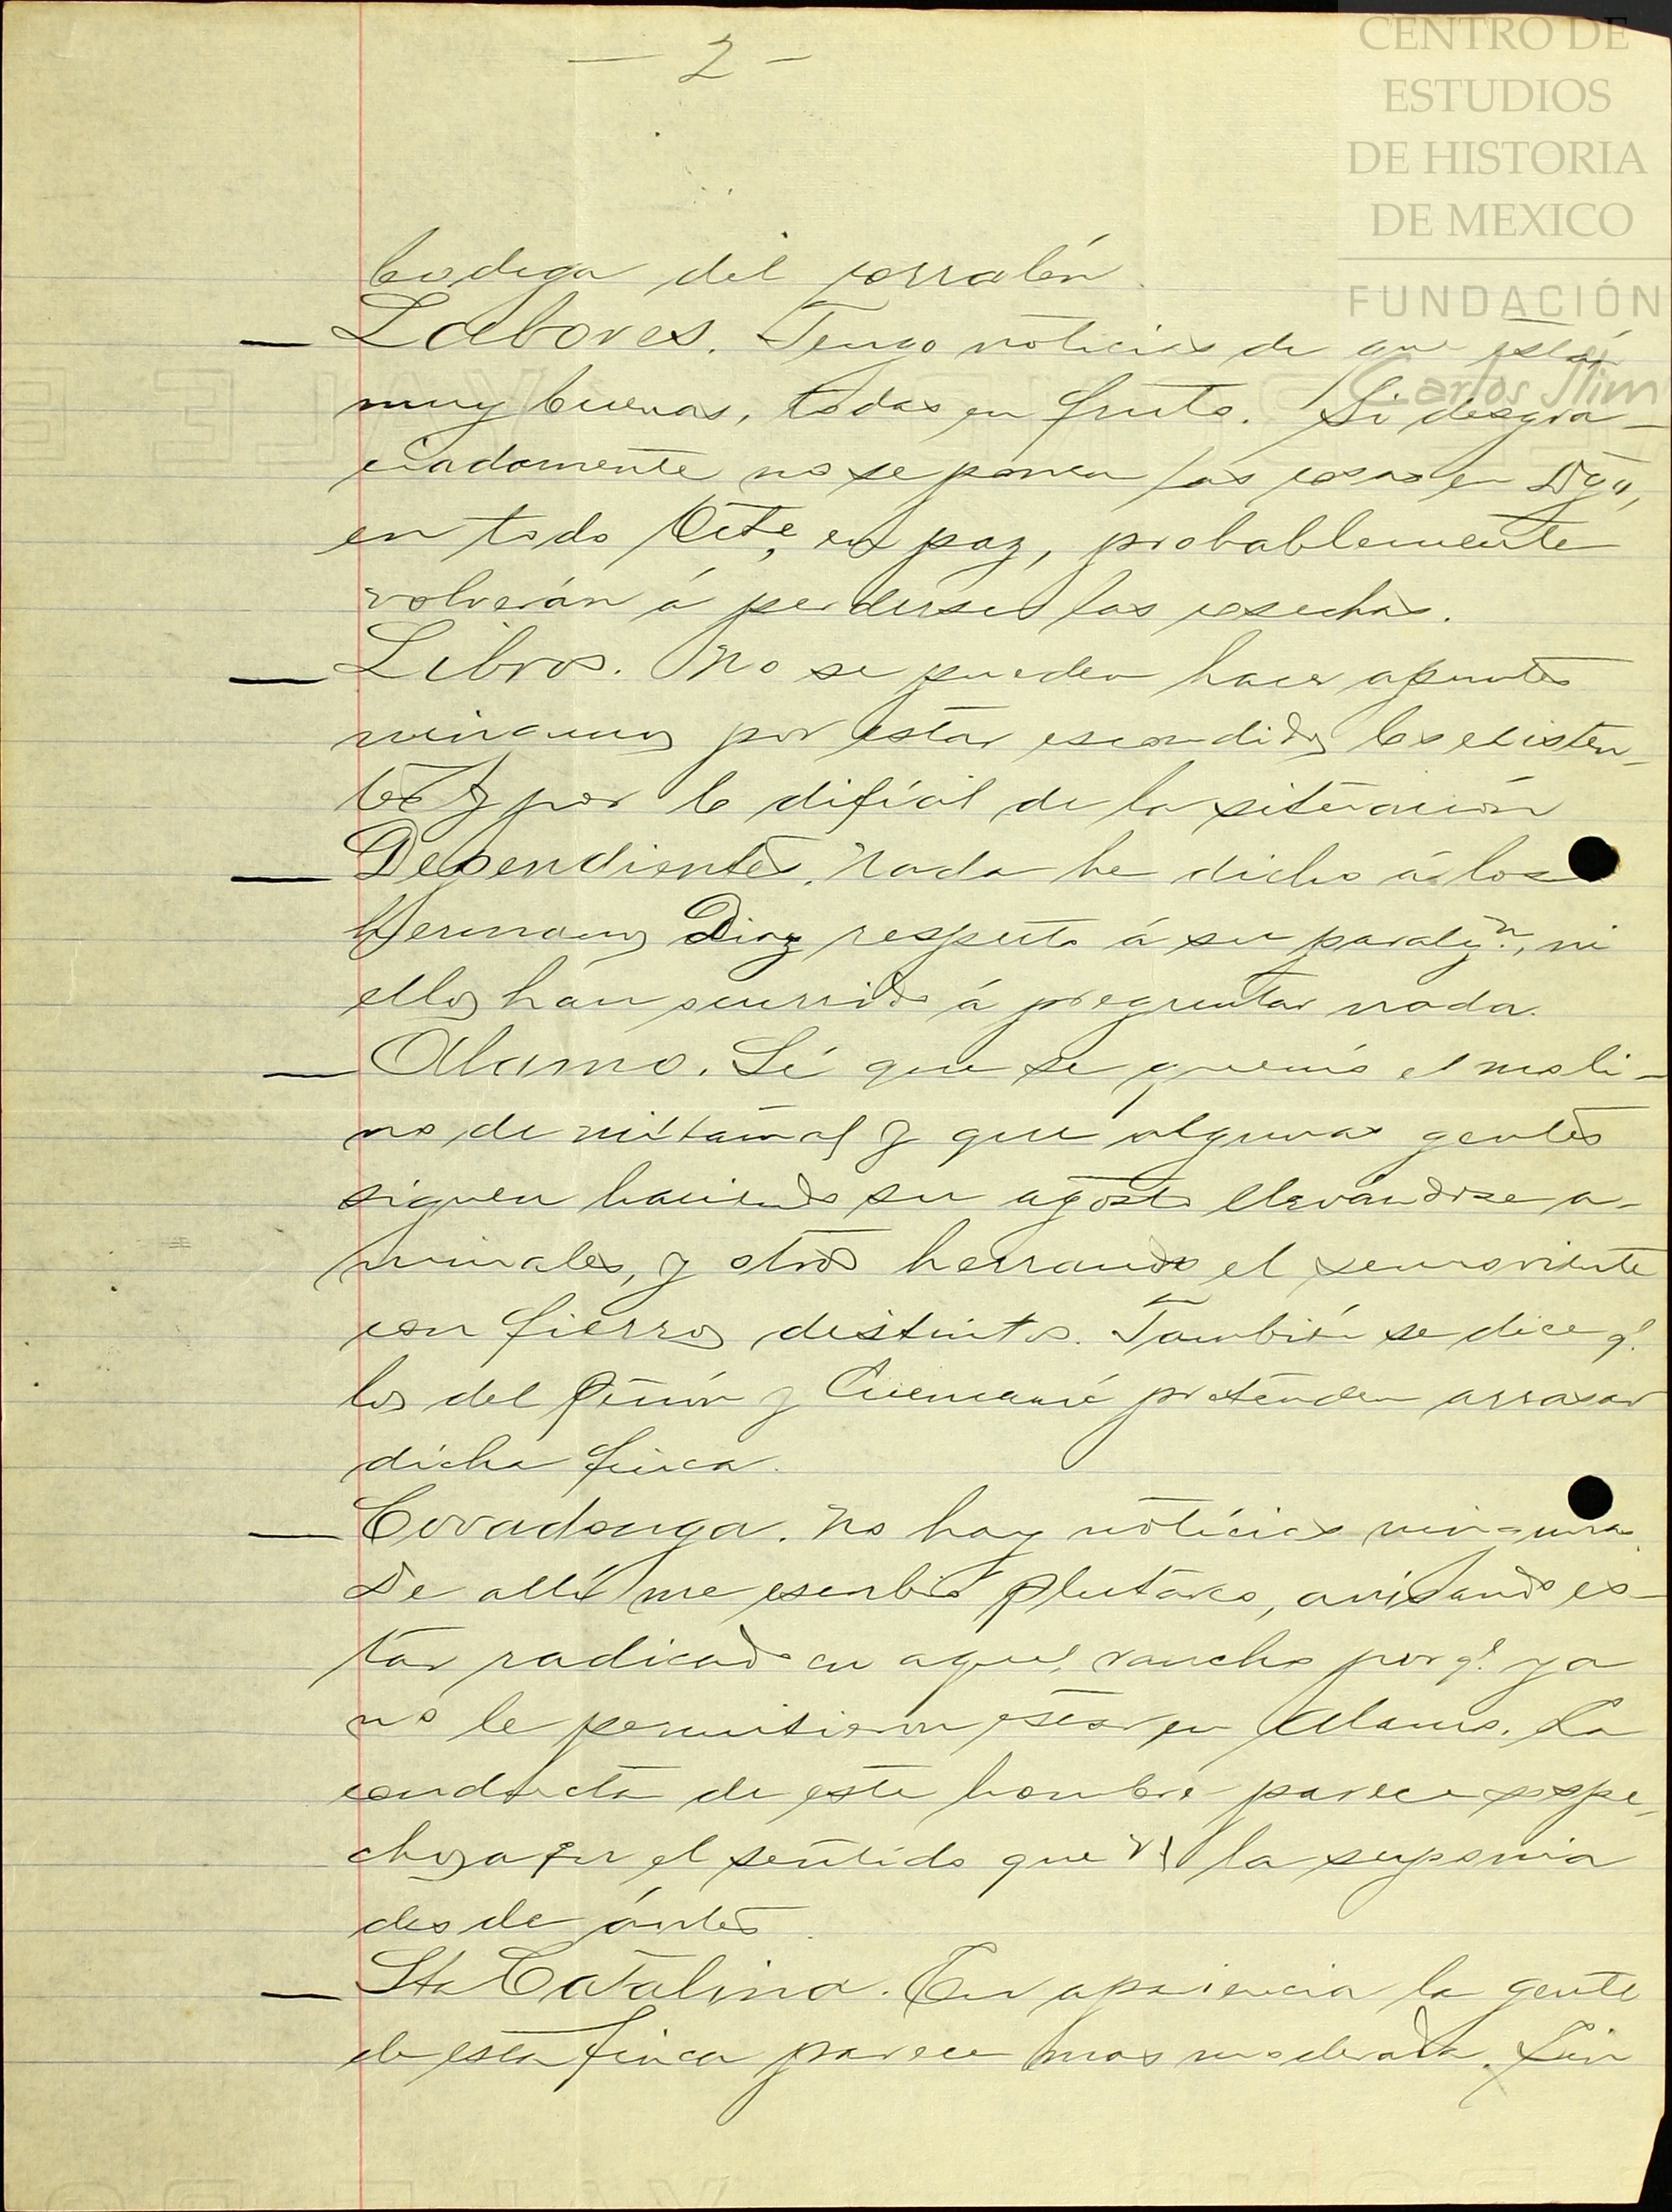 — 2 —
CENTRO DE
ESTUDIOS
DE HISTORIA
DE MEXICO
FUNDACIÓN
Carlos Slim
bodega del corralón.
— Labores. Tengo noticias de que están
muy buenas, todas en fruto. Si desgra-
ciadamente no se ponen las cosas en Dgo,
en todo Octe, en paz, probablemente
volverán á perderse las cosechas.
— Libros. No se pueden hacer apuntes
ningunos por estar escondidos los existen-
tes y por lo difícil de la situación
— Dependientes. Nada he dicho á los
Hermanos Diaz respecto á su paralizn., ni
ellos hán ocurrido á preguntar nada.
— Alamo. Sé que se quemó el moli-
no de nixtamal y que algunas gentes
siguen haciendo su agosto llevándose a-
nimales, y otros herrando el semoviente
con fierros distintos. También se dice q.
los del Peñón y Cuencamé pretenden arrasar
dicha finca.
— Covadonga. No hay noticias ningunas.
De allí me escribió Plutarco, avisando es-
tar radicado en aquel rancho porq. ya
no le permitieron estar en Alamo. La
conducta de este hombre parece sospe-
chosa en el sentido que Vd la suponía
desde ántes.
— Sta Catalina. En apariencia la gente
de esta finca parece mas moderada. Sin